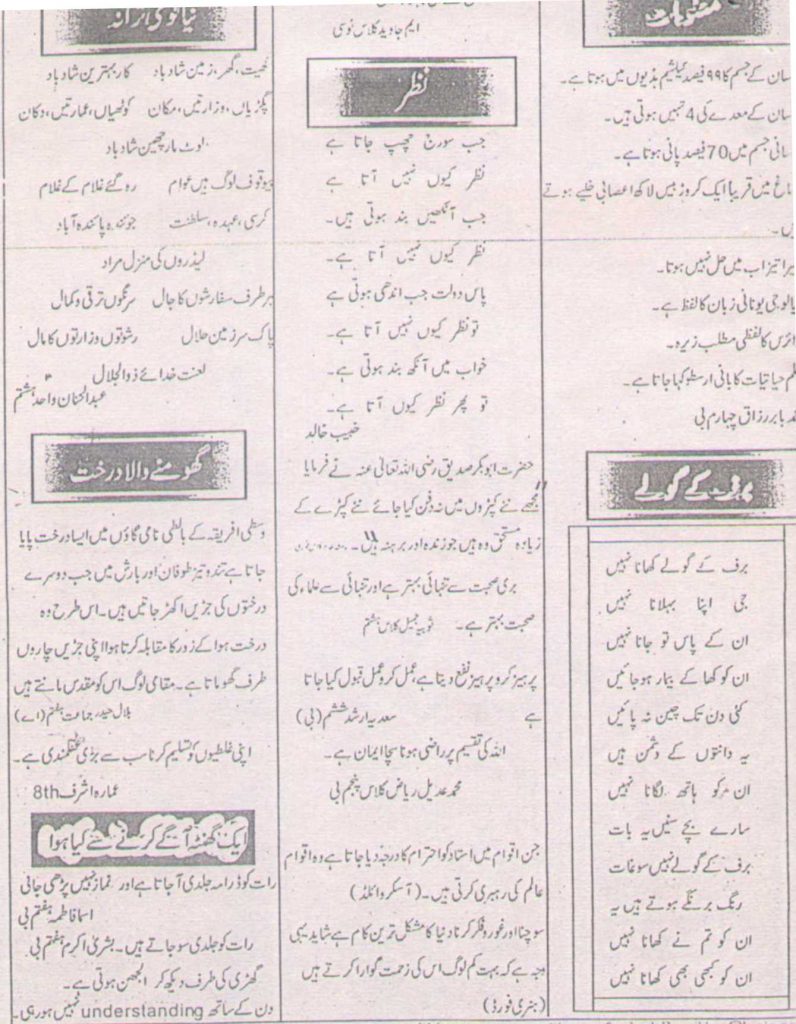 معلومات
سان کے جسم کا ۹۹ فیصد کیلشیم ہڈیوں میں ہوتا ہے۔
سان کے معدے کی 4 تہیں ہوتی ہیں۔
سانی جسم میں 70 فیصد پانی ہوتا ہے۔
ماغ میں قریباً ایک کروڑ بیس لاکھ اعصابی خلیے ہوتے
یں۔
یرا تیزاب میں حل نہیں ہوتا۔
یالوجی یونانی زبان کا لفظ ہے۔
ائرس کا لفظی مطلب زہر ہ۔
لم حیاتیات کا بانی ارسطو کہا جاتا ہے۔
بابر رزاق چہارم بی
برف کے گولے
برف کے گولے کھانا نہیں
جی اپنا بہلانا نہیں
ان کے پاس تو جانا نہیں
ان کو کھا کے بیمار ہو جائیں
کئی دن تک چین نہ پائیں
یہ دانتوں کے دشمن ہیں
ان کو ہاتھ لگانا نہیں
سارے بچے سنیں یہ بات
برف کے گولے نہیں سوغات
رنگ برنگے ہوتے ہیں یہ
ان کو تم نے کھانا نہیں
ان کو کبھی بھی کھانا نہیں
ایم جاوید کلاس نوسی
نظر
جب سورج چھپ جاتا ہے
نظر کیوں نہیں آتا ہے
جب آنکھیں بند ہوتی ہیں۔
نظر کیوں نہیں آتا ہے۔
پاس دولت جب اندھی ہوتی ہے
تو نظر کیوں نہیں آتا ہے۔
خواب میں آنکھ بند ہوتی ہے۔
تو پھر نظر کیوں آتا ہے۔
خبیب خالد
حضرت ابوبکر صدیق رضی اللہ تعالیٰ عنہ نے فرمایا
"مجھے نئے کپڑوں میں نہ دفن کیا جائے نئے کپڑے کے
زیادہ مستحق وہ ہیں جو زندہ اور برہنہ ہیں"۔
بری صحبت سے تنہائی بہتر ہے اور تنہائی سے علماء کی
صحبت بہتر ہے۔ ثوبیہ جمیل کلاس ہشتم
پرہیز کرو پرہیز نفع دیتا ہے، عمل کرو عمل قبول کیا جاتا
ہے سعدیہ ارشد ششم (بی)
اللہ کی تقسیم پر راضی ہونا سچا ایمان ہے۔
محمد عدیل ریاض کلاس پنجم بی
جن اقوام میں استاد کو احترام کا درجہ دیا جاتا ہے وہ اقوام
عالم کی رہبری کرتی ہیں۔ (آسکر وائلڈ)
سوچنا اور غور و فکر کرنا دنیا کا مشکل ترین کام ہے شاید یہی
وجہ ہے کہ بہت کم لوگ اس کی زحمت گوارا کرتے ہیں
(ہنری فورڈ)
نیا قومی ترانہ
کھیت، گھر، زمین شاد باد کار بہترین شاد باد
پگڑیاں، وزارتیں، مکان کوٹھیاں، عمارتیں، دکان
لوٹ مار چھین شاد باد
بیوقوف لوگ ہیں عوام رہ گئے غلام کے غلام
کرسی، عہدہ، سلطنت جوئندہ پائندہ آباد
لیڈروں کی منزل مراد
ہر طرف سفارشوں کا جال سرنگوں ترقی و کمال
پاک سرزمین حلال رشوتوں وزارتوں کا مال
لعنت خدائے ذوالجلال
عبدالحنان واحد ہشتم
گھومنے والا درخت
وسطی افریقہ کے بالطی نامی گاؤں میں ایسا درخت پایا
جاتا ہے تند و تیز طوفان اور بارش میں جب دوسرے
درختوں کی جڑیں اکھڑ جاتیں ہیں۔ اس طرح وہ
درخت ہوا کے زور کا مقابلہ کرتا ہوا اپنی جڑیں چاروں
طرف گھوماتا ہے۔ مقامی لوگ اس کو مقدس مانتے ہیں
بلال حیدر جماعت ہفتم (اے)
اپنی غلطیوں کو تسلیم کرنا سب سے بڑی عقلمندی ہے۔
عمارہ اشرف 8th
ایک گھنٹہ آگے کرنے سے کیا ہوا
رات کو ڈرامہ جلدی آ جاتا ہے اور نماز نہیں پڑھی جاتی
اسما فاطمہ ہفتم بی
رات کو جلدی سو جاتے ہیں۔ بشریٰ اکرم ہفتم بی
گھڑی کی طرف دیکھ کر الجھن ہوتی ہے۔
دن کے ساتھ understanding نہیں ہو رہی۔